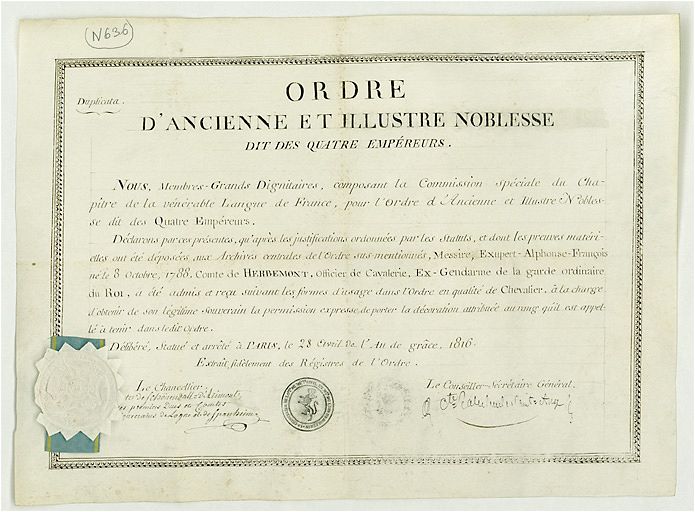 N636
Duplicata.
ORDRE
D'ANCIENNE ET ILLUSTRE NOBLESSE
DIT DES QUATRE EMPÉREURS.
NOUS, Membres-Grands Dignitaires, composant la Commission spéciale du Cha-
pitre de la vénérable Langue de France, pour l'Ordre d'Ancienne et Illustre Nobles-
se dit des Quatre Empéreurs.
Déclarons par ces présentes, qu'après les justifications ordonnées par les Statuts, et dont les preuves matéri-
elles ont été déposées aux Archives centrales de l'Ordre sus-mentionnés, Messire, Exupert-Alphonse-François
né le 8 Octobre, 1788. Comte de HERBEMONT, Officier de Cavalerie, Ex-Gendarme de la garde ordinaire
du Roi, a été admis et reçu suivant les formes d'usage dans l'Ordre en qualité de Chevalier, à la charge
d'obtenir de son légitime Souverain la permission expresse, de porter la décoration attribuée au rang qu'il est appel-
lé à tenir dans ledit Ordre.
Délibéré, Statué et arrêté à PARIS, le 28 Avril de l'An de grâce, 1816.
Extrait, fidèlement des Régistres de l'Ordre.
Le Chancellier.
Le Conseiller-Secrétaire Général.